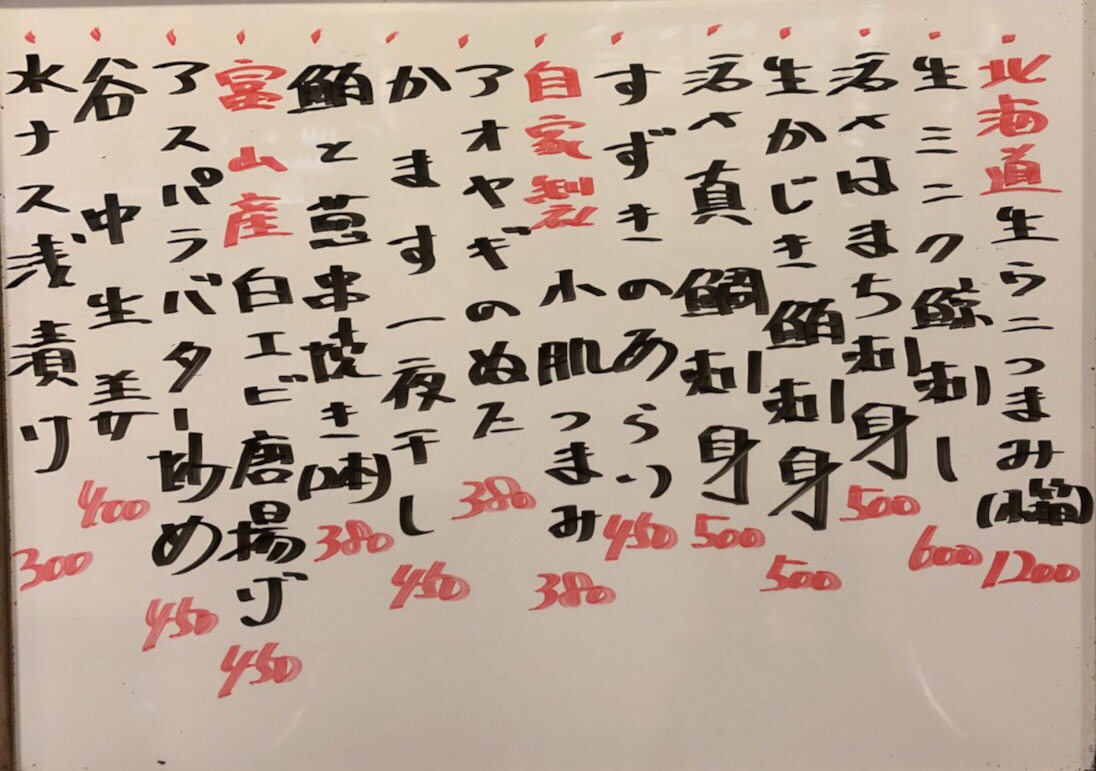 北海道生うにつまみ(小箱) 1200
生ミンク鯨刺し 600
活〆はまち刺身 500
生かじき鮪刺身 500
活〆真鯛刺身 500
すずきのあらい 450
自家製 小肌つまみ 380
アオヤギのぬた 380
かます一夜干し 450
鮪と葱串焼き(2本) 380
富山産白エビ唐揚げ 450
アスパラバター炒め 450
谷中生姜 400
水ナス浅漬け 300